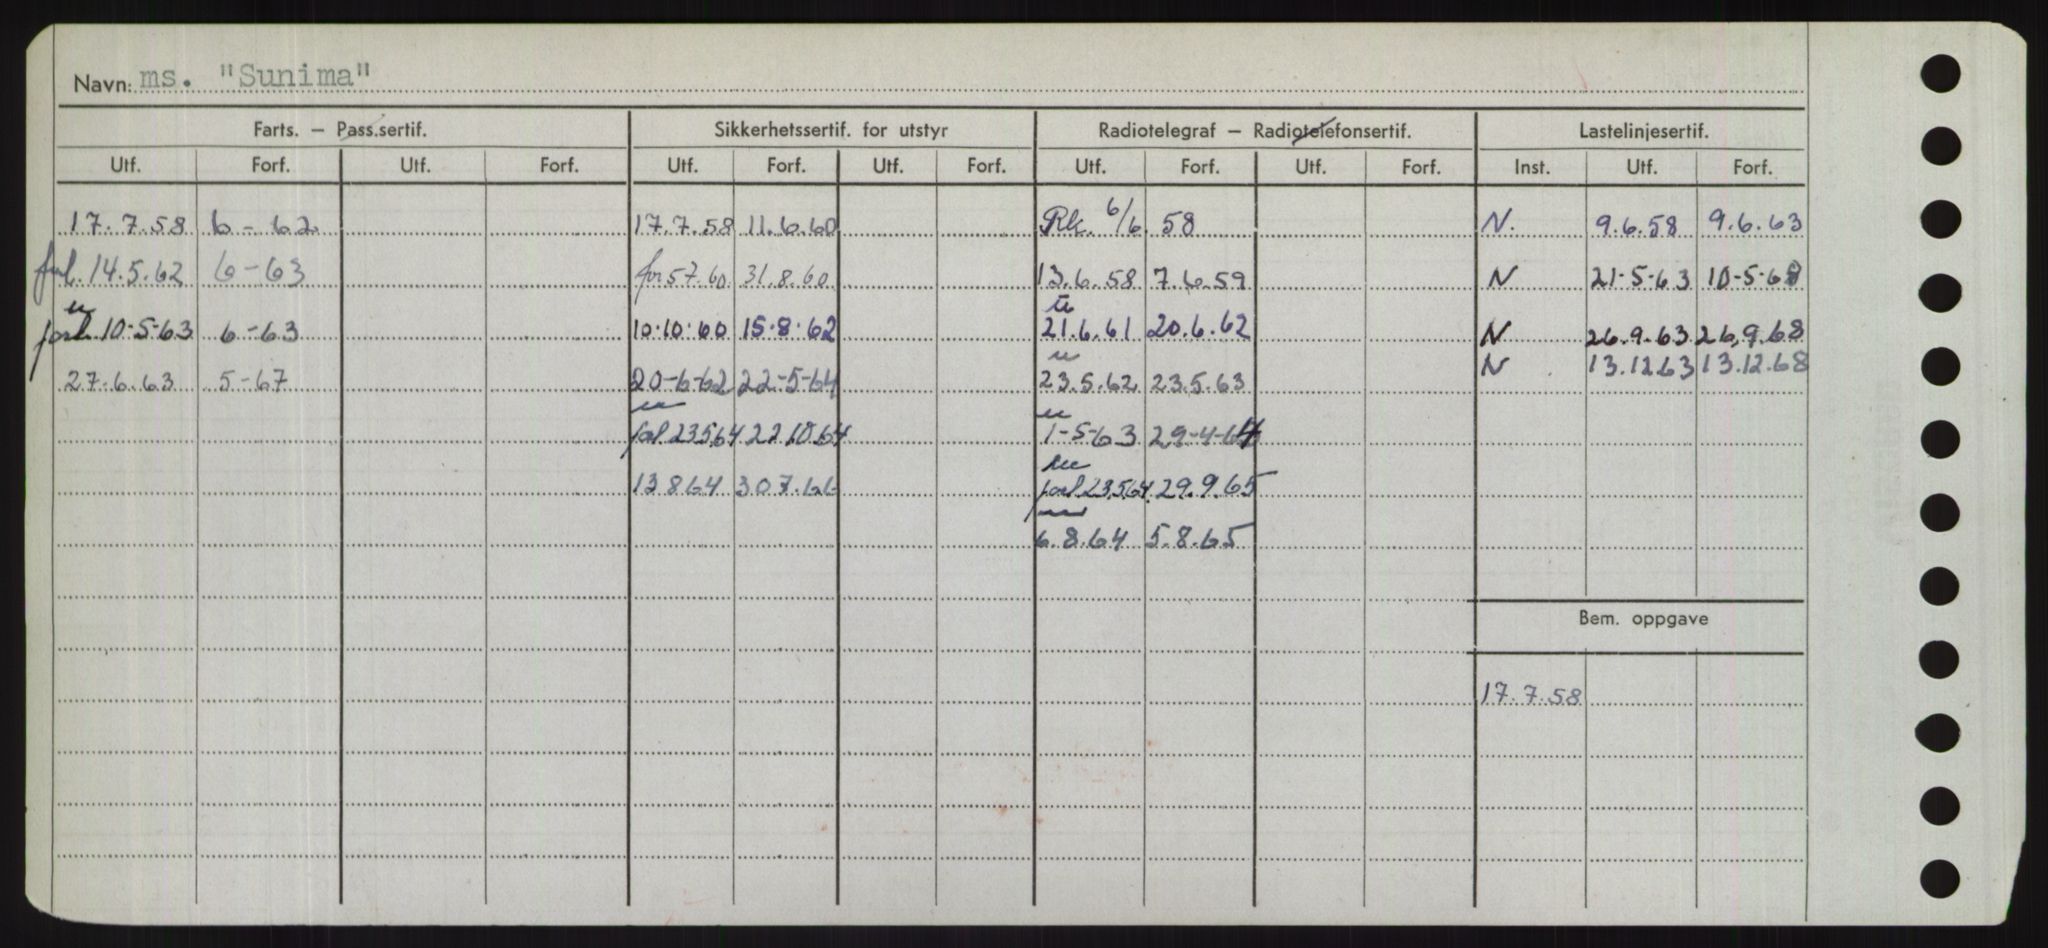 Navn: ms. "Sunima"
Farts. – Pass.sertif. Sikkerhetssertif. for utstyr Radiotelegraf – Radiotelefonsertif. Lastelinjesertif.
Utf. Forf. Utf. Forf. Utf. Forf. Utf. Forf. Utf. Forf. Utf. Forf. Inst. Utf. Forf.
17.7.58 6-62 17.7.58 11.6.60 Rk. 6/6 58 N. 9.6.58 9.6.63
14.5.62 6-63 31.8.60 13.6.58 7.6.59 N 21-5-63
10-5-63 6-63 10.10.60 15.8.62 21.6.61 20.6.62 N 26.9.63 26.9.68
N 13.12.63 13.12.68
27.6.63 5-67 20-6-62 22-5-64 23.5.62 23.5.63
forl 23564 22.10.64 1-5-63 29-4-64
13 8 64 30 7.66 forl 23.5.64 29.9.65
6.8.64 5.8.65
Bem. oppgave
17.7.58